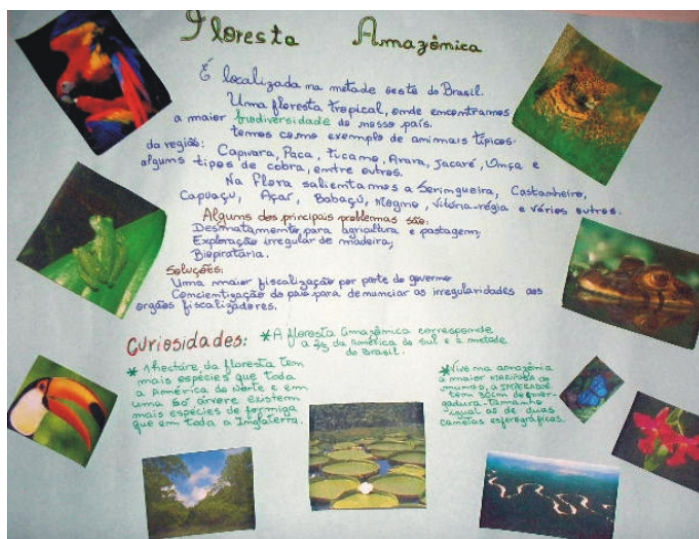 Floresta Amazônica
É localizada na metade oeste do Brasil.
Uma floresta tropical, onde encontramos
a maior biodiversidade do nosso país.
temos como exemplo de animais típicos
da região: Capivara, Paca, Tucano, Arara, Jacaré, Onça e
alguns tipos de cobra, entre outros.
Na Flora salientamos a Seringueira, Castanheiro,
Cupuaçu, Açaí, Babaçú, Mogno, Vitória-régia e vários outros.
Alguns dos principais problemas são:
Desmatamento, para agricultura e pastagem;
Exploração irregular de madeira;
Biopirataria.
Soluções:
Uma maior fiscalização por parte do governo
Concientização do país para denunciar as irregularidades aos
orgãos fiscalizadores.
Curiosidades:
*A floresta Amazônica corresponde
a 2/5 da América do Sul e à metade
do Brasil.
* 1 hectáre da floresta tem
mais espécies que toda
a América do Norte e em
uma só árvore existem
mais espécies de formiga
que em toda a Inglaterra.
*Vive na amazônia
a maior do
mundo, a IMPERADOR
tem 30cm de enver-
gadura-tamanho
igual ao de duas
canetas esferográficas.